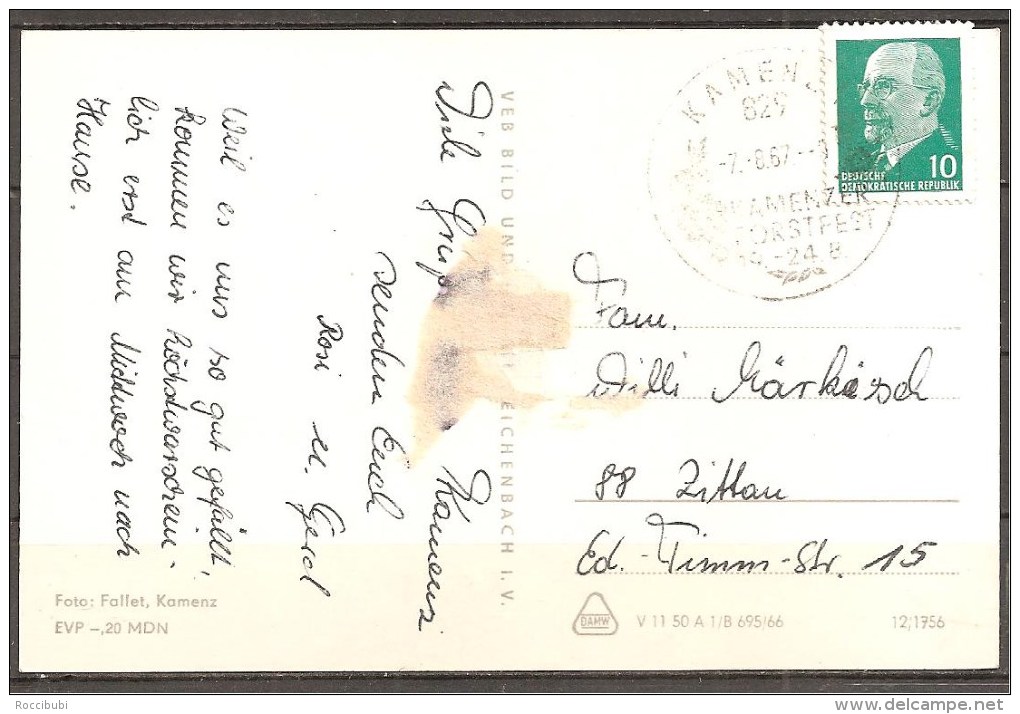 Viele Grüße Kamenz
senden Euch
Rosi u. Gerd
Weil es uns so gut gefällt,
kommen wir höchstwarschein-
lich erst am Mittwoch nach
Hause.
VEB BILD UND EICHENBACH I. V.
KAMEN
829
-7.-8.67.--
KAMENZER
FORSTFEST
-24.8.
10
DEUTSCHE
DEMOKRATISCHE REPUBLIK
Fam.
Willi
88 Zittau
Ed.-Timm-Str. 15
Foto: Fallet, Kamenz
EVP -,20 MDN
DAMW
V 11 50 A 1/B 695/66
12/1756
Roccibubi
delcampe.net